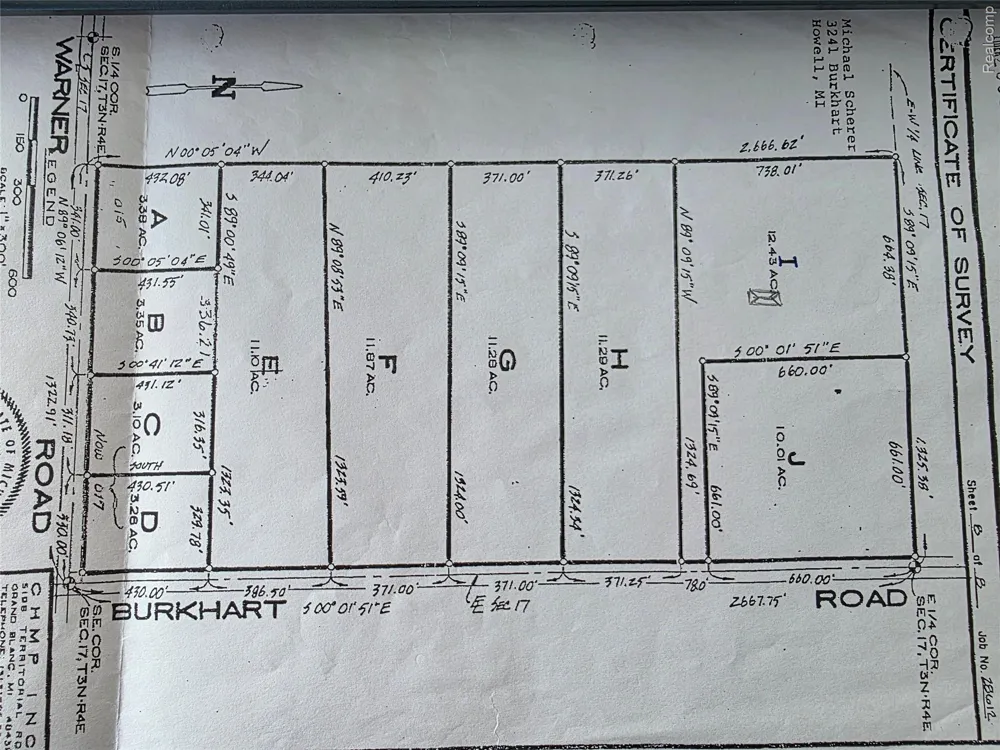 CERTIFICATE OF SURVEY
Sheet B of B
Job No. 28612
Michael Scherer
3241 Burkhart
Howell, MI
N
E-W 1/4 LINE SEC. 17
S 89°09'15"E
664.38'
1325.38'
661.00'
2,666.62'
738.01'
I
12.43 AC.
S 00° 01' 51" E
660.00'
J
10.01 AC.
S 89°09'15"E
661.00'
N 89°09'15"W
1324.69'
371.26'
H
11.29 AC.
S 89°09'15"E
1324.34'
371.00'
G
11.28 AC.
S 89°09'15"E
1324.00'
410.23'
F
11.87 AC.
N 89°08'53"E
1323.59'
344.04'
E
11.10 AC.
S 89°00'49"E
1323.35'
N 00° 05' 04" W
432.08'
341.01'
A
3.38 AC.
015
S 00° 05' 04" E
431.55'
336.21
B
3.35 AC.
S 00° 41' 12" E
431.12'
316.35'
C
3.10 AC.
SOUTH
430.51'
329.78'
D
3.26 AC.
NOW
017
430.00'
386.50'
371.00'
371.00'
371.25'
78.0
660.00'
BURKHART
S 00° 01' 51" E
E SEC 17
2667.75'
ROAD
E 1/4 COR.
SEC. 17, T3N-R4E
S.E. COR.
SEC. 17, T3N-R4E
S 1/4 COR.
SEC. 17, T3N-R4E
WARNER
ROAD
341.00'
N 89°06'12"W
340.73'
311.18'
330.00'
1322.91'
LEGEND
0 150 300 600
SCALE: 1" = 300'
CHMP INC
5198 TERRITORIAL RD
GRAND BLANC, MI
TELEPHONE:
Realcomp